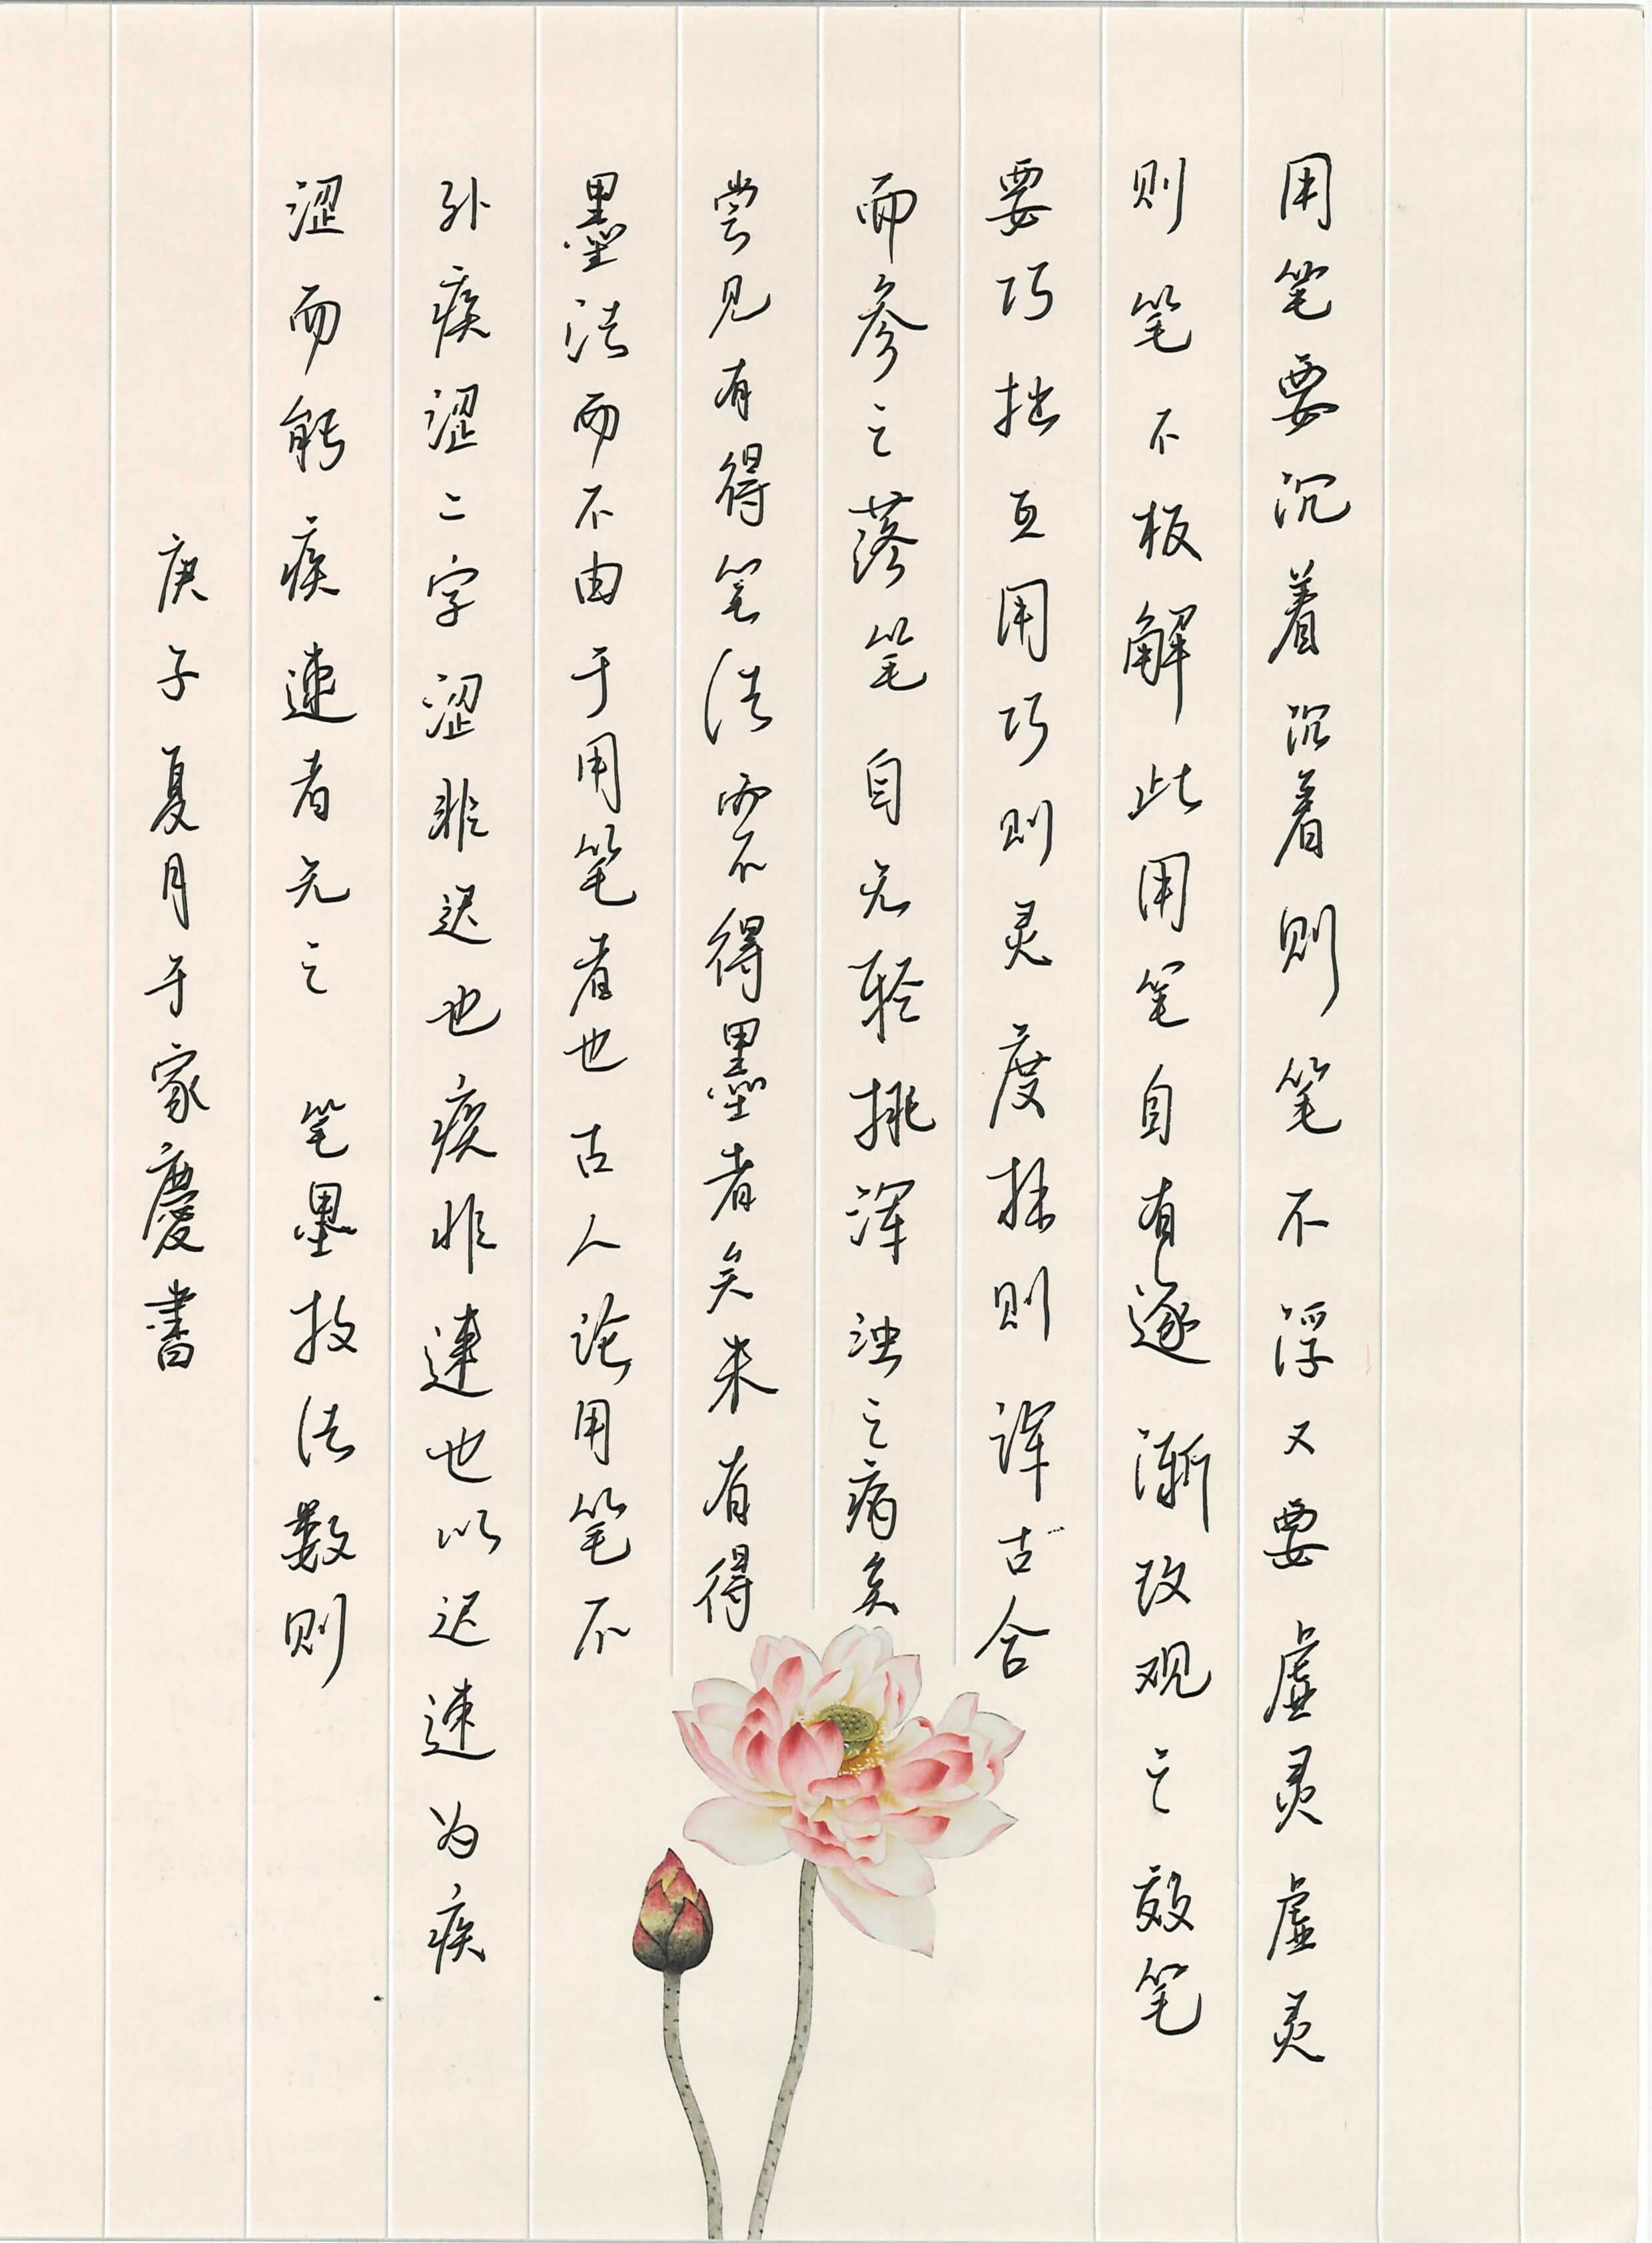 用笔要沉着沉着则笔不浮又要虚灵虚灵
则笔不板解此用笔自有逐渐改观之效笔
要巧拙互用巧则灵度拙则浑古合
而参之落笔自无轻挑浑浊之病矣
尝见有得笔法而不得墨者矣未有得
墨法而不由于用笔者也古人论用笔不
外疾涩二字涩非迟也疾非速也以迟速为疾
涩而能疾速者无之 笔墨技法数则
庚子夏月于家慶書